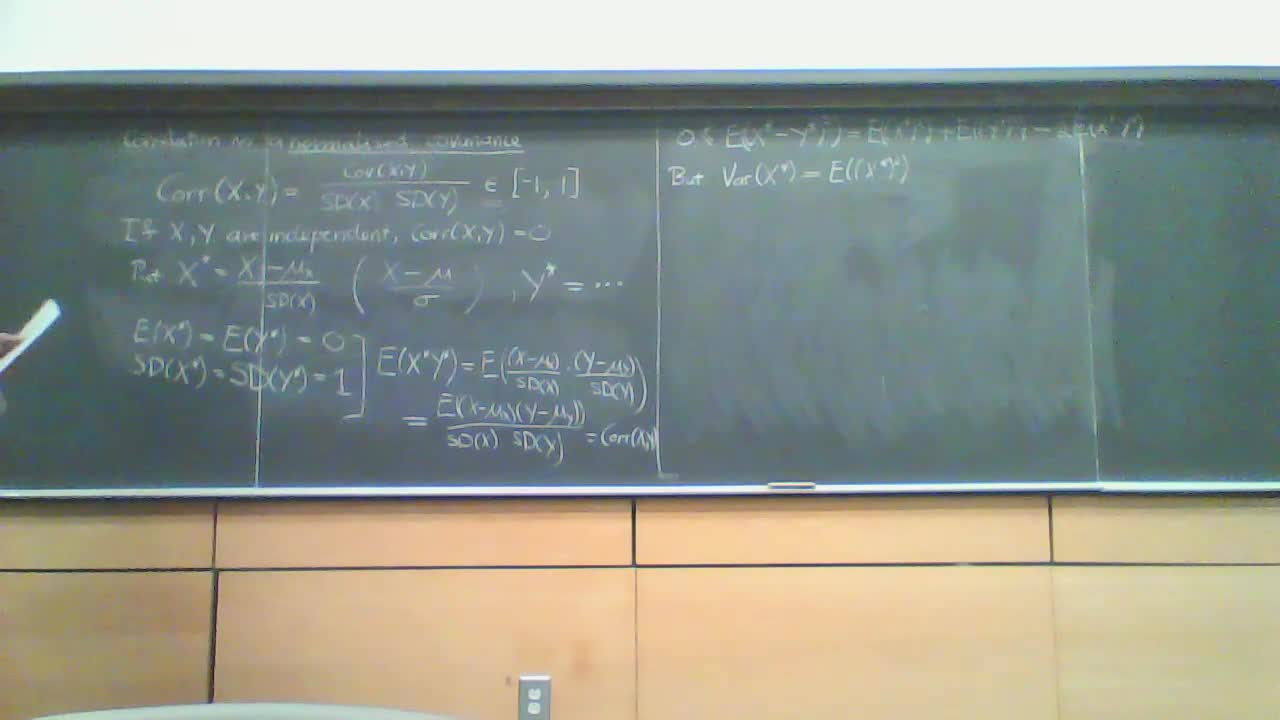 Correlation is a normalized covariance
Corr(X,Y) = Cov(X,Y) / SD(X) SD(Y) ∈ [-1, 1]
If X, Y are independent, Corr(X,Y) = 0
Put X* = X - μₓ / SD(X) ( X - μ / σ ), Y* = ...
E(X*) = E(Y*) = 0
SD(X*) = SD(Y*) = 1
E(X*Y*) = E( (X-μₓ) / SD(X) · (Y-μᵧ) / SD(Y) )
= E((X-μₓ)(Y-μᵧ)) / SD(X) SD(Y) = Corr(X,Y)
0 ≤ E((X*-Y*)²) = E((X*)²) + E((Y*)²) - 2E(X*Y*)
But Var(X*) = E((X*)²)